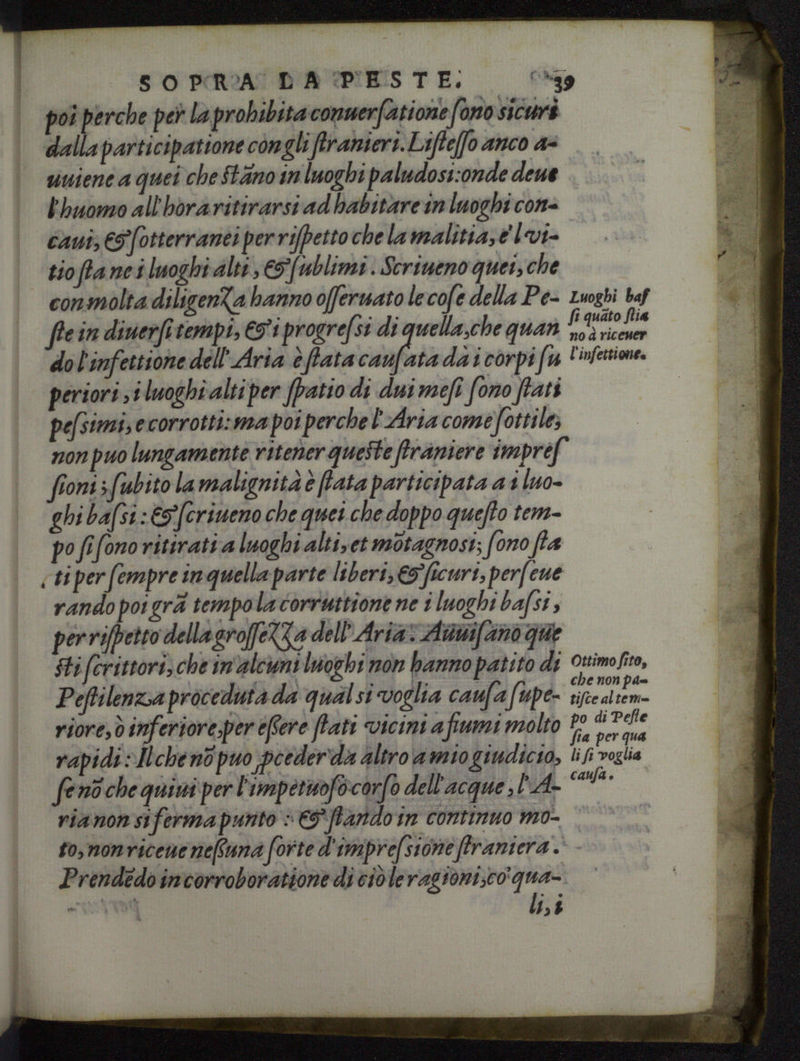 SOPRA LA PESTE. 39
poi perche per la prohibita conuerſatione ſono sicuri
dalla participatione con gli ſtranieri. L'iſteſſo anco a-
uuiene a quei che ſtāno in luoghi paludosi: onde deue
l'huomo all'hora ritirarsi ad habitare in luoghi con-
caui, & ſotterranei per riſpetto che la malitia, e'l vi-
tio ſta ne i luoghi alti, & ſublimi. Scriueno quei, che
con molta diligenza hanno oſſeruato le coſe della Pe-
ſte in diuerſi tempi, & i progreſsi di quella, che quan
do l'infettione dell'Aria è ſtata cauſata da i corpi ſu
periori, i luoghi alti per ſpatio di dui meſi ſono ſtati
peſsimi, e corrotti: ma poi perche l'Aria come ſottile,
non puo lungamente ritener queſte ſtraniere impreſ
ſioni; ſubito la malignità è ſtata participata a i luo-
ghi baſsi: & ſcriueno che quei che doppo queſto tem-
po ſi ſono ritirati a luoghi alti, et mōtagnosi; ſono ſta
ti per ſempre in quella parte liberi, & ſicuri, perſeue
rando poi grā tempo la corruttione ne i luoghi baſsi,
per riſpetto della groſſezza dell'Aria. Auuiſano que
ſti ſcrittori, che in alcuni luoghi non hanno patito di
Peſtilenza proceduta da qual si voglia cauſa ſupe-
riore, ò inferiore, per eſsere ſtati vicini a fiumi molto
rapidi: Il che nō puo ꝓceder da altro a mio giudicio,
ſe nō che quiui per l'impetuoſo corſo dell'acque, l'A-
ria non si ferma punto: & ſtando in continuo mo-
to, non riceue neſsuna ſorte d'impreſsione ſtraniera.
Prendēdo in corroboratione di ciò le ragioni, cō qua-
li, i
Luoghi baſ
ſi quāto ſtia
no à riceuer
l'infettione.
Ottimo ſito,
che non pa-
tiſce al tem-
po di Peſte
ſia per qua
li ſi voglia
cauſa.